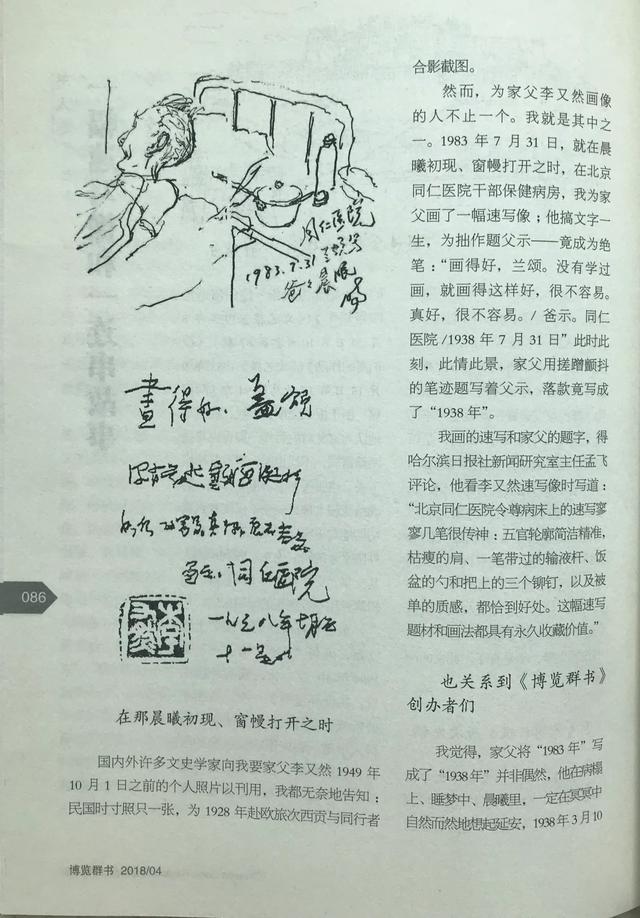 同仁医院
1983.7.31
爸爸晨眠
画得好，兰颂
同仁医院
一九三八年七月三
十一日
在那晨曦初现、窗幔打开之时
国内外许多文史学家向我要家父李又然 1949 年
10 月 1 日之前的个人照片以刊用，我都无奈地告知：
民国时寸照只一张，为 1928 年赴欧旅次西贡与同行者
合影截图。
然而，为家父李又然画像
的人不止一个。我就是其中之
一。1983 年 7 月 31 日，就在晨
曦初现、窗幔打开之时，在北京
同仁医院干部保健病房，我为家
父画了一幅速写像；他搞文字一
生，为拙作题父示——竟成为绝
笔：“画得好，兰颂。没有学过
画，就画得这样好，很不容易。
真好，很不容易。/ 爸示。同仁
医院 /1938 年 7 月 31 日”此时此
刻，此情此景，家父用搓蹭颤抖
的笔迹题写着父示，落款竟写成
了“1938 年”。
我画的速写和家父的题字，得
哈尔滨日报社新闻研究室主任孟飞
评论，他看李又然速写像时写道：
“北京同仁医院令尊病床上的速写寥
寥几笔很传神：五官轮廓简洁精准，
枯瘦的肩、一笔带过的输液杆、饭
盆的勺和把上的三个铆钉，以及被
单的质感，都恰到好处。这幅速写
题材和画法都具有永久收藏价值。”
也关系到《博览群书》
创办者们
我觉得，家父将“1983 年”写
成了“1938 年”并非偶然，他在病榻
上、睡梦中、晨曦里，一定在冥冥中
自然而然地想起延安，1938 年 3 月 10
086
博览群书 2018/04